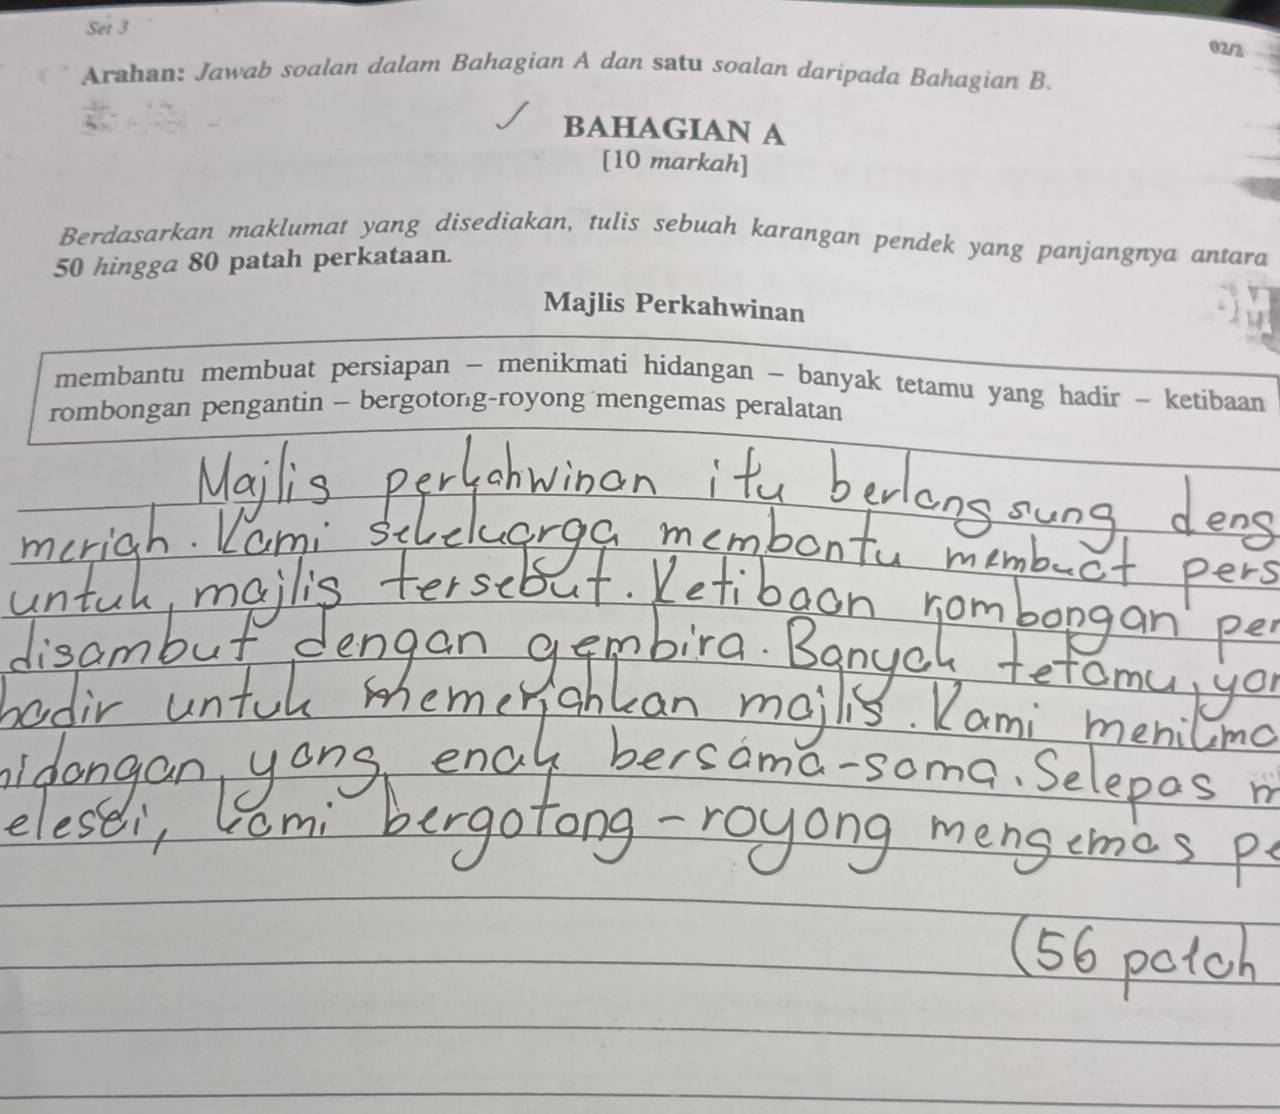 Set 3
02/2
Arahan: Jawab soalan dalam Bahagian A dan satu soalan daripada Bahagian B.
BAHAGIAN A
[10 markah]
Berdasarkan maklumat yang disediakan, tulis sebuah karangan pendek yang panjangnya antara
50 hingga 80 patah perkataan.
Majlis Perkahwinan
membantu membuat persiapan – menikmati hidangan – banyak tetamu yang hadir – ketibaan
rombongan pengantin – bergotong-royong mengemas peralatan
Majlis perkahwinan itu berlangsung deng
meriah. Kami sekeluarga membantu membuat pers
untuk majlis tersebut. Ketibaan rombongan pe
disambut dengan gembira. Banyak tetamu yan
hadir untuk memeriahkan majlis. Kami menikma
hidangan yang enak bersama-sama. Selepas m
elesai, kami bergotong-royong mengemas pe
(56 patah